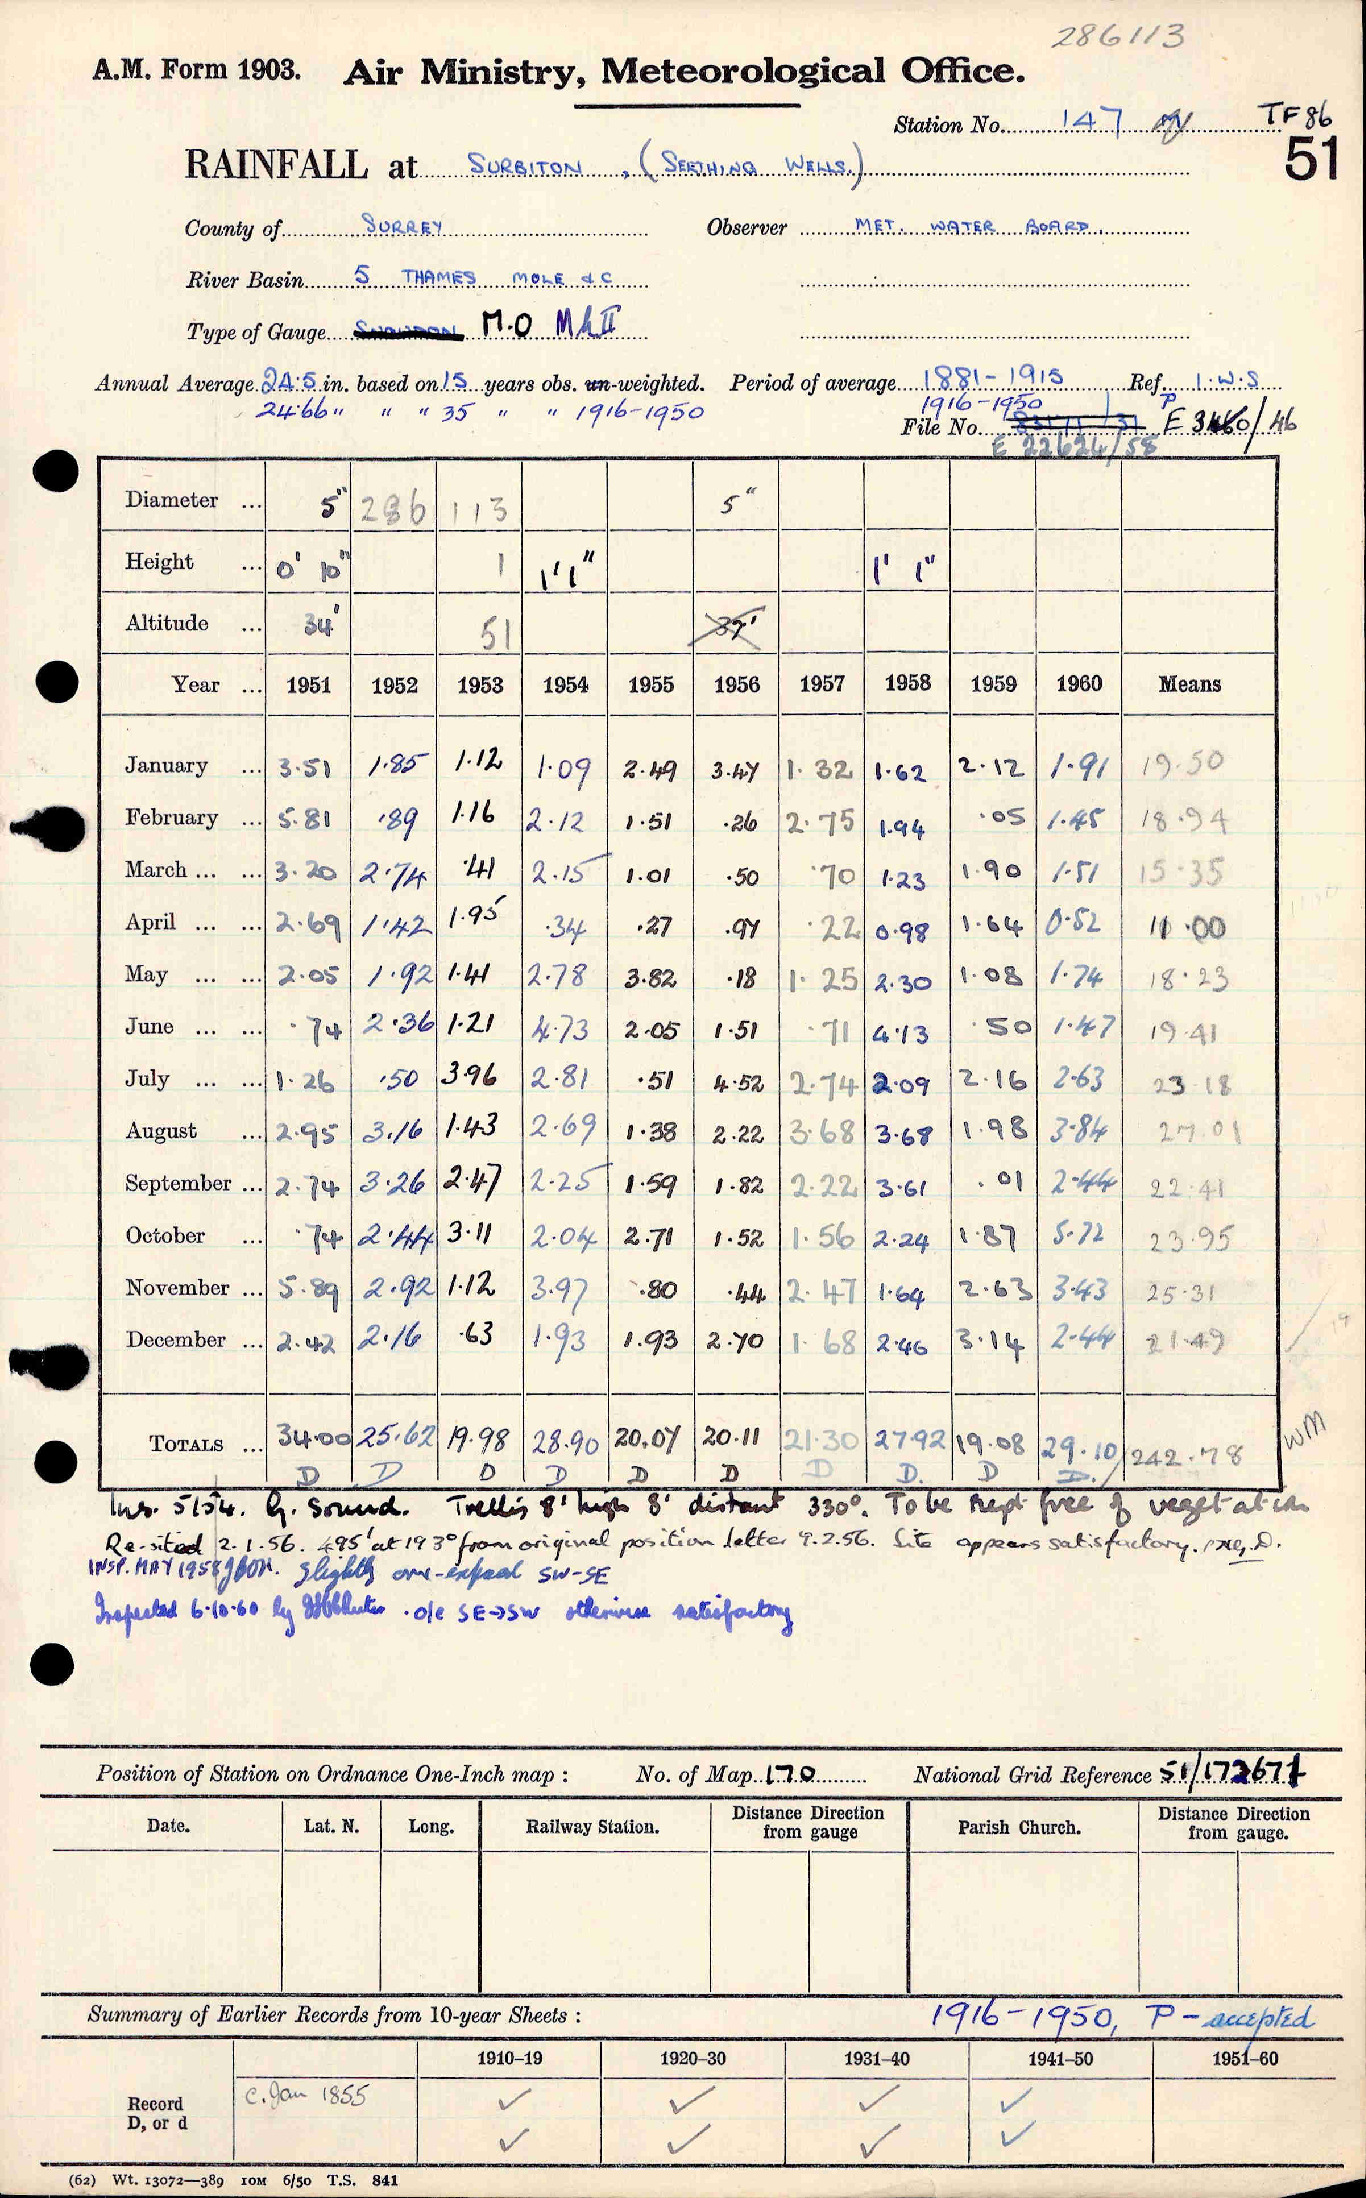 286113
A.M. Form 1903. Air Ministry, Meteorological Office.
Station No. 147 TF86
RAINFALL at SURBITON, (SEETHING WELLS.) 51
County of SURREY Observer MET. WATER BOARD.
River Basin 5 THAMES MOLE &C
Type of Gauge SNOWDON M.O Mk II
Annual Average 24.5 in. based on 15 years obs. un-weighted. Period of average 1881-1915 Ref. I.W.S
24.66 " " " 35 " " 1916-1950 1916-1950
File No. E 3460/46
E 22624/58
Diameter ... 5" 286 113 5"
Height ... 0' 10" 1 1'1" 1' 1"
Altitude ... 34' 51 37'
Year ... 1951 1952 1953 1954 1955 1956 1957 1958 1959 1960 Means
January ... 3.51 1.85 1.12 1.09 2.49 3.47 1.32 1.62 2.12 1.91 19.50
February ... 5.81 .89 1.16 2.12 1.51 .26 2.75 1.94 .05 1.45 18.94
March ... ... 3.20 2.74 .41 2.15 1.01 .50 .70 1.23 1.90 1.51 15.35
April ... ... 2.69 1.42 1.95 .34 .27 .97 .22 0.98 1.64 0.52 11.00
May ... ... 2.05 1.92 1.41 2.78 3.82 .18 1.25 2.30 1.08 1.74 18.23
June ... ... .74 2.36 1.21 4.73 2.05 1.51 .71 4.13 .50 1.47 19.41
July ... ... 1.26 .50 3.96 2.81 .51 4.52 2.74 2.09 2.16 2.63 23.18
August ... 2.95 3.16 1.43 2.69 1.38 2.22 3.68 3.68 1.98 3.84 27.01
September ... 2.74 3.26 2.47 2.25 1.59 1.82 2.22 3.61 .01 2.44 22.41
October ... .74 2.44 3.11 2.04 2.71 1.52 1.56 2.24 1.87 5.72 23.95
November ... 5.89 2.92 1.12 3.97 .80 .44 2.47 1.64 2.63 3.43 25.31
December ... 2.42 2.16 .63 1.93 1.93 2.70 1.68 2.46 3.14 2.44 21.49
TOTALS ... 34.00 25.62 19.98 28.90 20.07 20.11 21.30 27.92 19.08 29.10 242.78
D D D D D D D D. D D.
WM
Ins. 5/54. G. sound. Trellis 8' high 8' distant 330°. To be kept free of vegetation
Re-sited 2.1.56. 495' at 193° from original position letter 9.2.56. Site appears satisfactory.
INSP. MAY 1958 Slightly over-exposed SW-SE
Inspected 6.10.60 by o/e SE→SW otherwise satisfactory
Position of Station on Ordnance One-Inch map : No. of Map 170 National Grid Reference 51/172677
Date. Lat. N. Long. Railway Station. Distance Direction from gauge Parish Church. Distance Direction from gauge.
Summary of Earlier Records from 10-year Sheets : 1916-1950, P - accepted
1910–19 1920–30 1931–40 1941–50 1951–60
Record D, or d c. Jan 1855 ✓ ✓ ✓ ✓
✓ ✓ ✓ ✓
(62) Wt. 13072—389 10M 6/50 T.S. 841